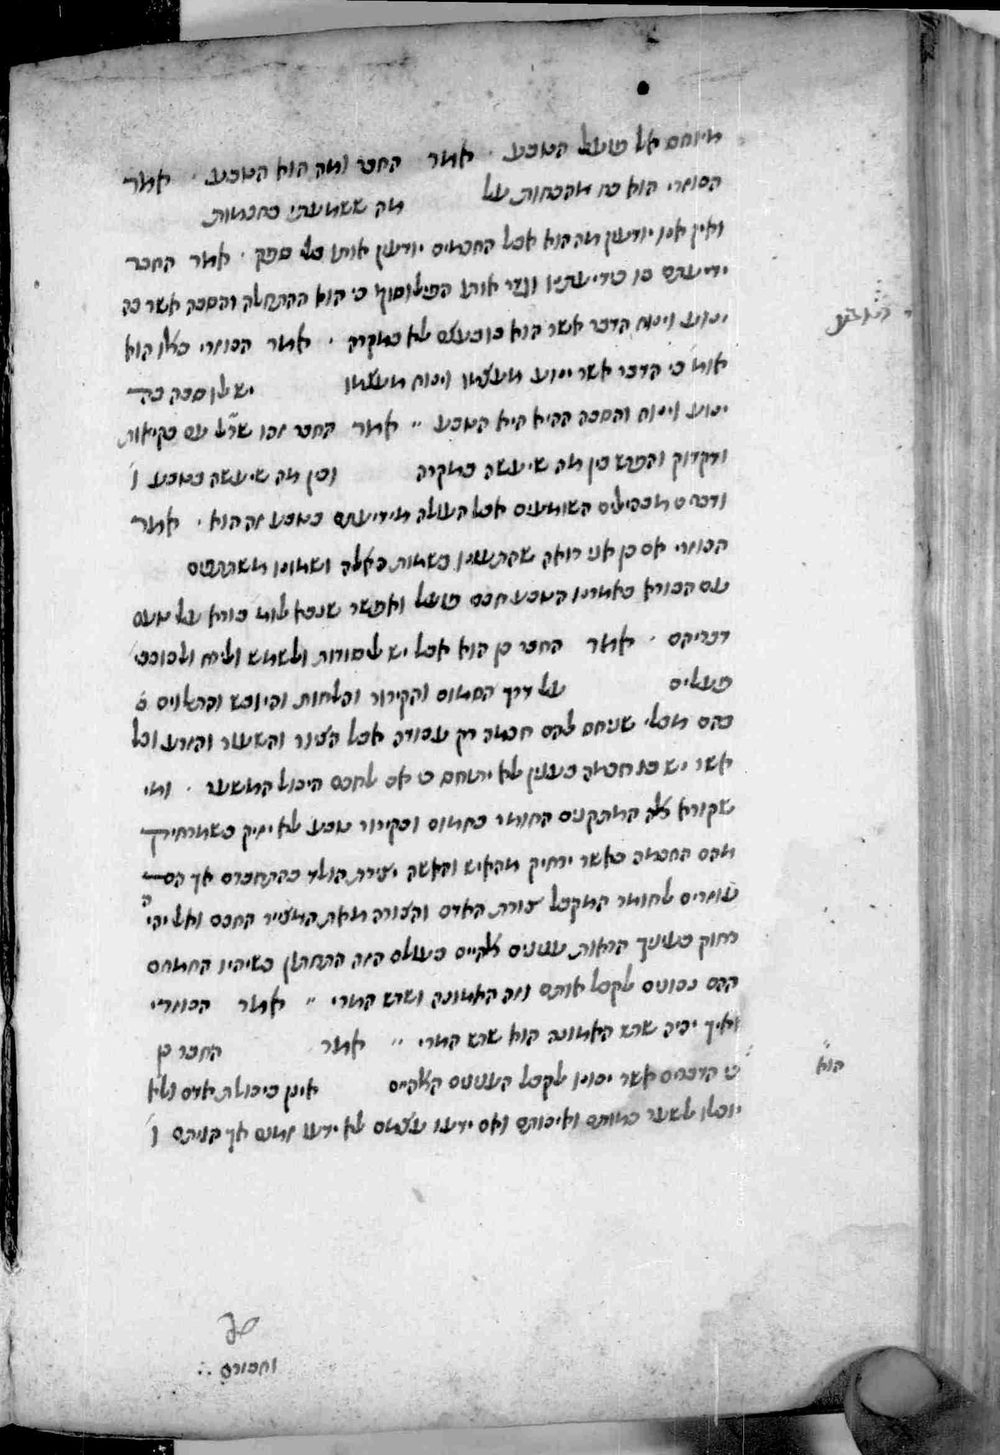 מיוחס אל פועל הטבע · אמר החבר ומה הוא הטבע · אמר
הכוזרי הוא כח מהכחות על מה ששמעתי בחכמות
ואין אנו יודעין מה הוא אבל החכמים יודעין אותו בלי ספק · אמר החבר
ידיעתם בו כידיעתינו וגדר אותו הפילוסוף כי הוא ההתחלה והסבה אשר בה
ינוע וינוח הדבר אשר הוא בו בעצם לא במקרה · אמר הכוזרי כאלו הוא
אומ׳ כי הדבר אשר ינוע מעצמו וינוח מעצמו יש לו סבה בה
ינוע וינוח והסבה ההיא היא הטבע ״ אמר החבר זהו שר״ל עם בקיאות
ודקדוק והפרש בין מה שיעשה במקרה ובין מה שיעשה בטבע ו׳
ודברים מבהילים השומעים אבל העולה מידיעתם בטבע זה הוא · אמר
הכוזרי אם כן אני רואה שהתעונו בשמות האלה ושמונו משתתפים
עם הבורא באמרנו הטבע חכם פועל ואפשר שנבא לומ׳ בורא על טעם
דבריהם · אמר החבר כן הוא אבל יש ליסודות ולשמש ולירח ולכוכבי׳
פועלים על דרך החמום והקירור והלחות והיובש והתלוים
בהם מבלי שניחס להם חכמה רק עבודה אבל הציור והשעור והזרע וכל
אשר יש בו חכמה בענין לא יתיחס כי אם לחכם היכול המשער · ומי
שקורא אלה המתקנים החומר בחמום ובקירור טבע לא יזיק כשמרחיק
מהם החכמה כאשר ירחיק מהאיש והאשה יצירת הולד בהתחברם אך הם
עוזרים לחומר המקבל צורת האדם והצורה מאת המצייר החכם ואל יהי
ה
רחוק בעיניך הראות עניינים אלהיים בעולם הזה התחתון כשיהיו החמרים
ההם נכונים לקבל אותם וזה האמונה ושרש המרי ״ אמר הכוזרי
ואיך יהיה שרש האמונה הוא שרש המרי ״ אמר החבר כן
כי הדברים אשר יכונו לקבל העניינים האלהיים אינן ביכולת אדם ולא
הוא
יוכלו לשער כמותם ואיכותם ואם ידעו עצמם לא ידעו זמנם אך הניתם ו׳
וחבורם ∴